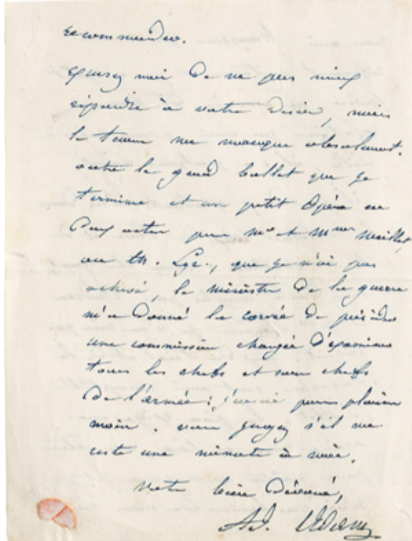 recommander.
Excusez moi de ne pas mieux
répondre à votre désir, mais
le temps me manque absolument.
outre le grand ballet que je
termine et un petit opéra en
deux actes pour Mr et Mme Meillet
au th. Lyr., que je n'ai pas
achevé, le ministre de la guerre
m'a donné la corvée de présider
une commission chargée d'examiner
tous les chefs et sous chefs
de l'armée; j'en ai pour plusieurs
mois. vous jugez s'il me
reste une minute à moi.
Votre bien dévoué,
Ad. Adam